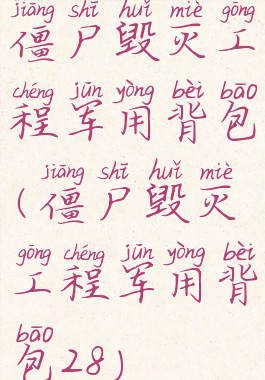 jiāng shī huǐ miè gōng
僵尸毁灭工
chéng jūn yòng bèi bāo
程军用背包
jiāng shī huǐ miè
(僵尸毁灭
gōng chéng jūn yòng bèi
工程军用背
bāo
包28)